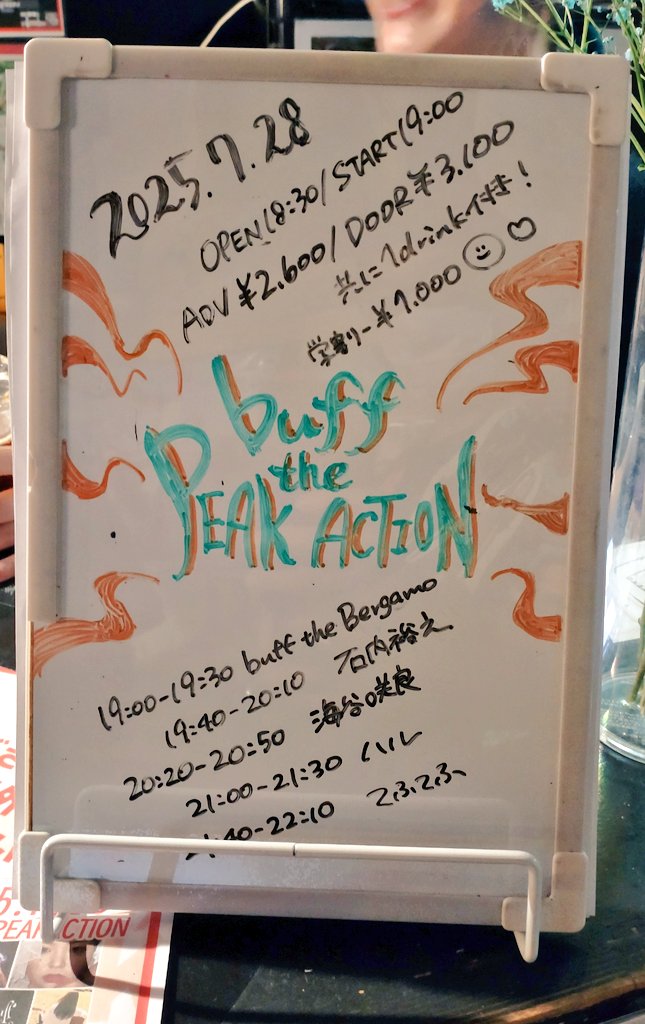 2025.7.28
OPEN18:30/START19:00
ADV ¥2.600/DOOR¥3.100
共に1drink付き!
学割り-¥1.000
buff
the
PEAK ACTION
19:00-19:30 buff the Bergamo
19:40-20:10 石内裕之
20:20-20:50 海谷咲良
21:00-21:30 ハル
21:40-22:10 てふてふ
5.
PEAK CTION